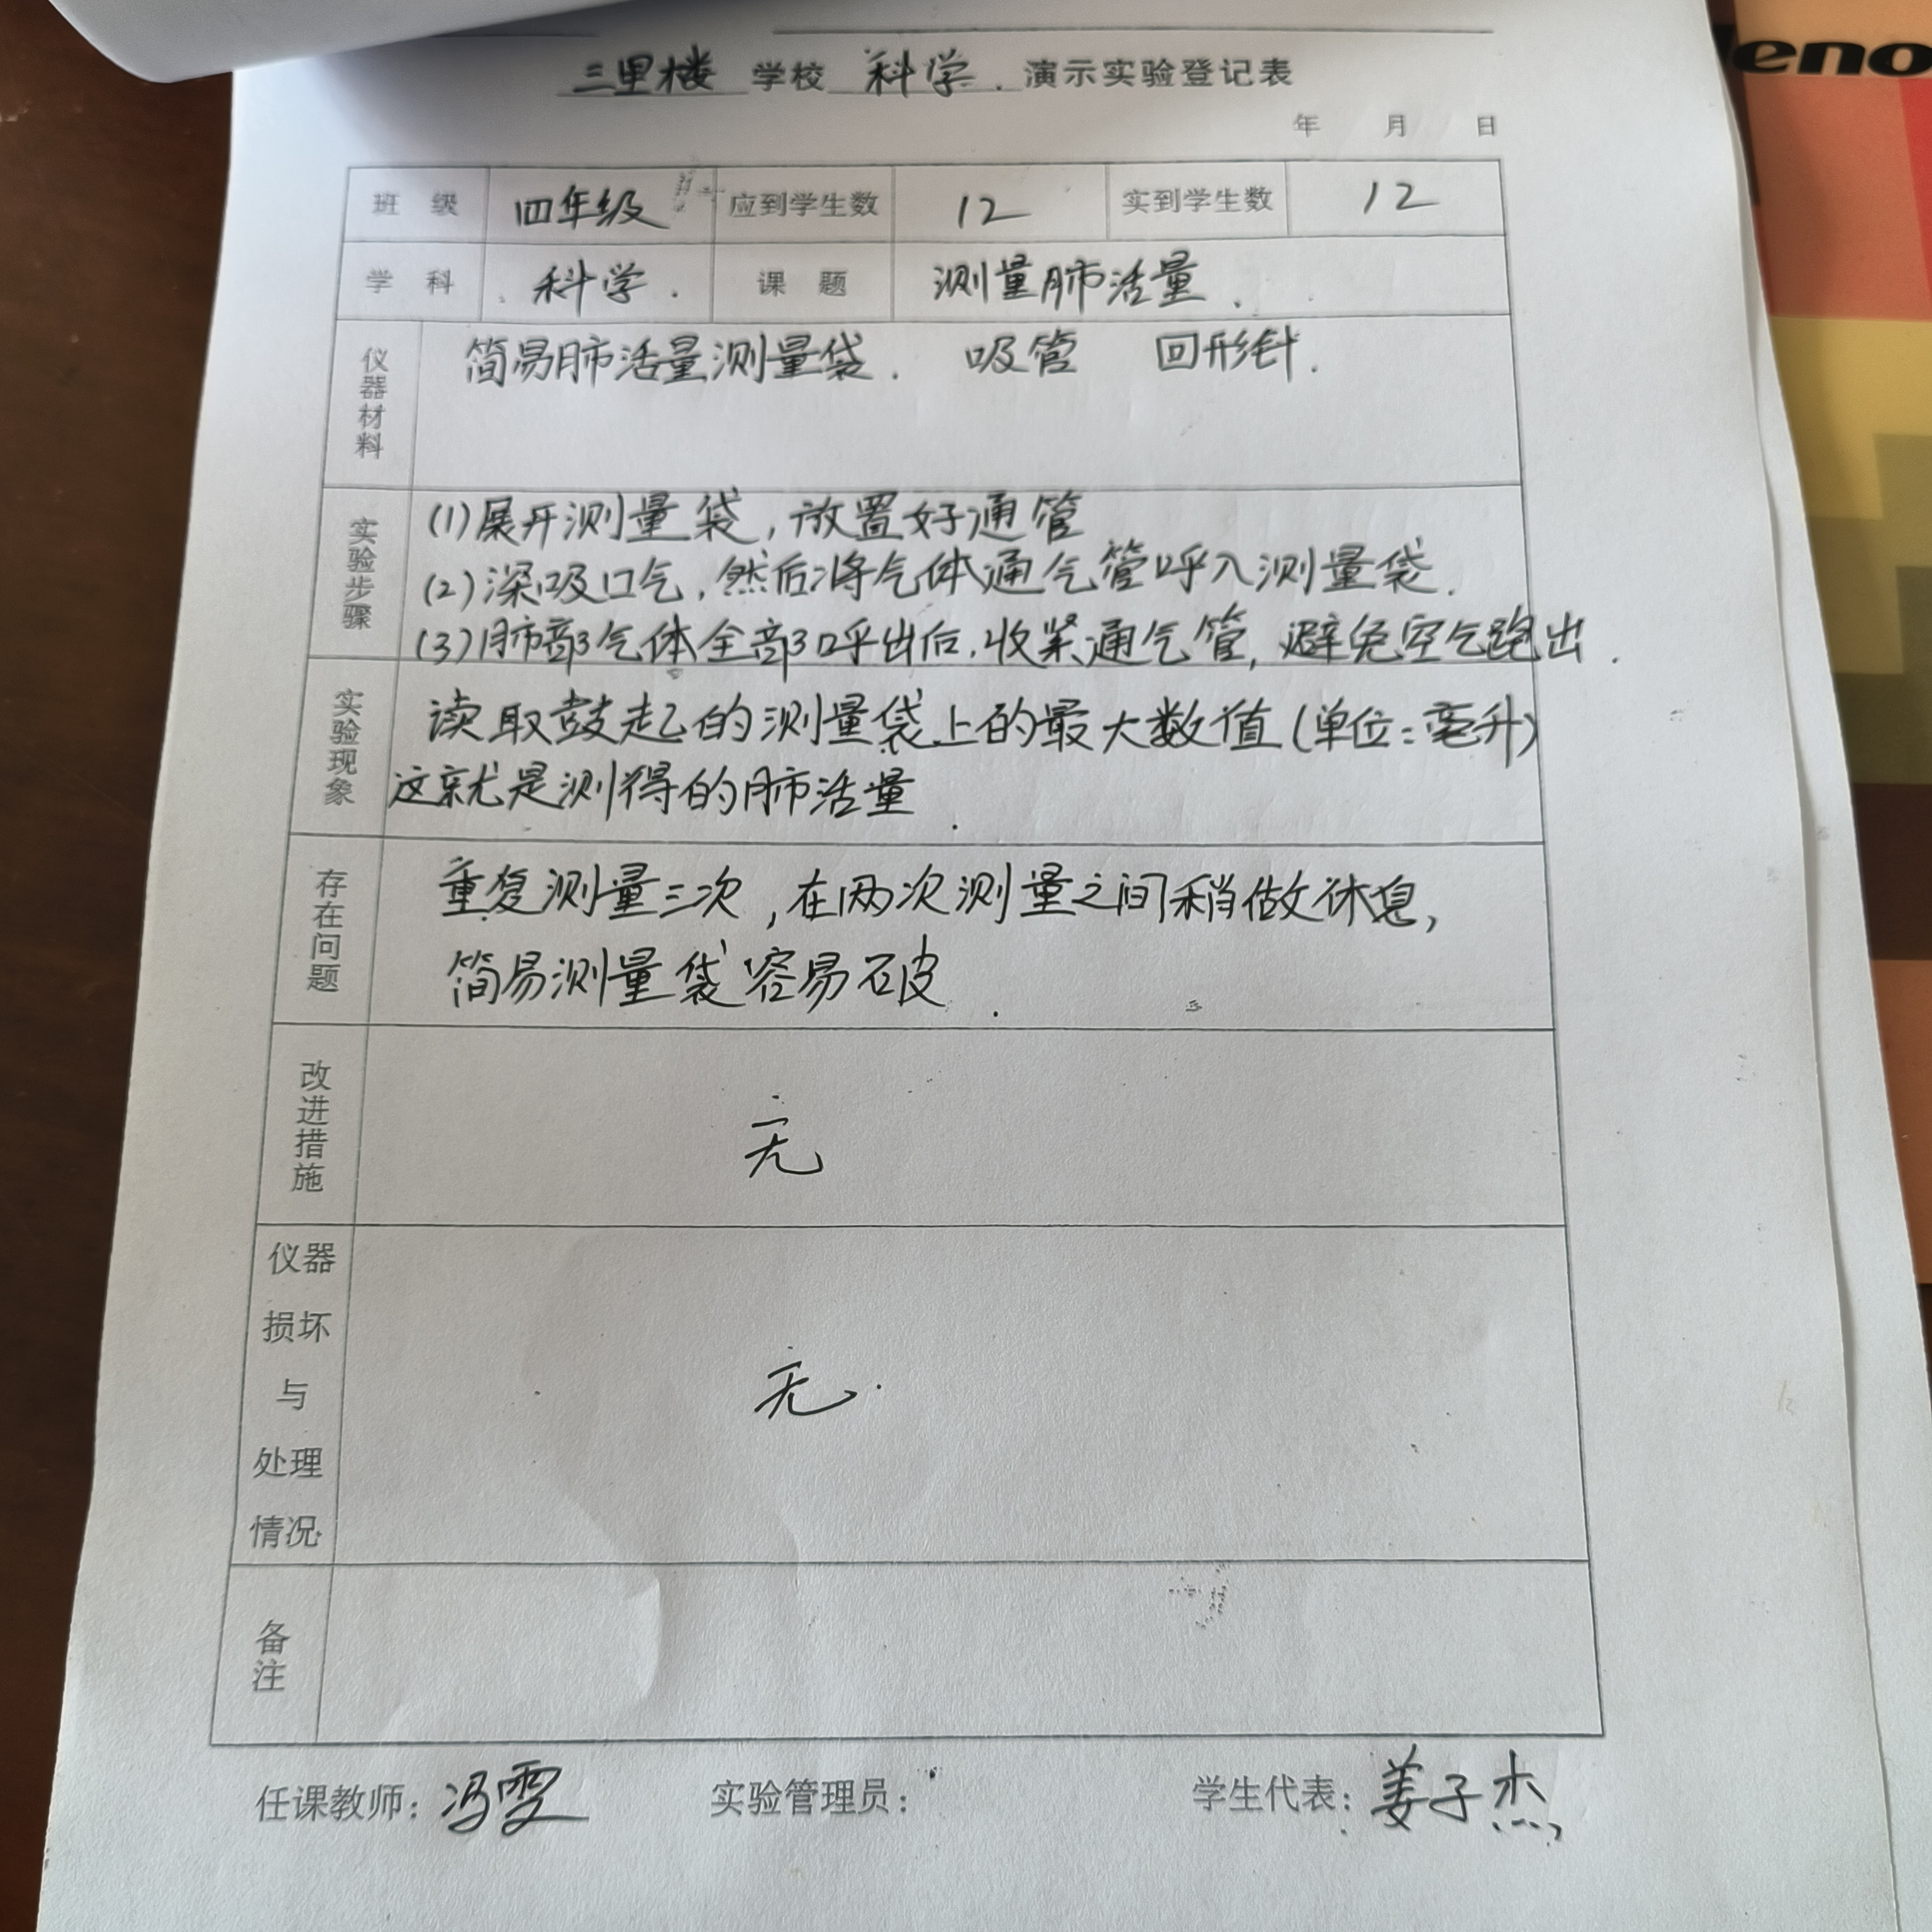 三里楼 学校 科学. 演示实验登记表
年 月 日
班 级 四年级 应到学生数 12 实到学生数 12
学 科 科学. 课 题 测量肺活量.
仪器材料 简易肺活量测量袋. 吸管 回形针.
实验步骤
(1)展开测量袋,放置好通管
(2)深吸口气,然后将气体通气管呼入测量袋.
(3)肺部气体全部呼出后,收紧通气管,避免空气跑出.
实验现象
读取鼓起的测量袋上的最大数值(单位:毫升)
这就是测得的肺活量.
存在问题
重复测量三次,在两次测量之间稍做休息,
简易测量袋容易破.
改进措施
无
仪器
损坏
与
处理
情况
无.
备注
任课教师: 冯雯 实验管理员: 学生代表: 姜子杰
leno